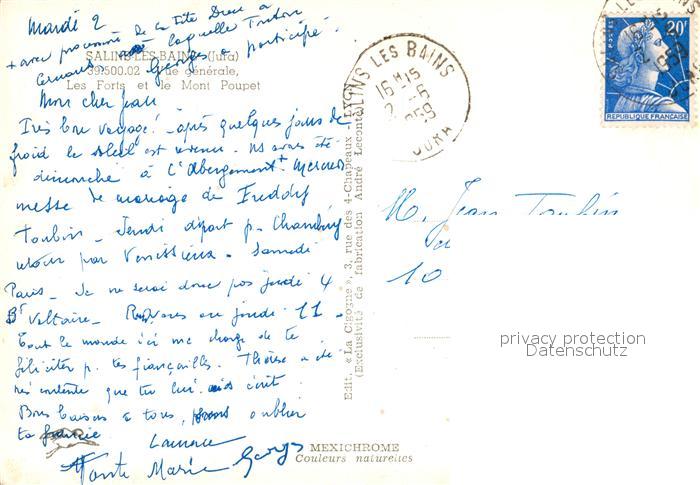 Mardi 2
SALINS-LES-BAINS (Jura)
39.500.02 - Vue générale,
Les Forts et le Mont Poupet
Mon cher Jean
Très bon voyage - après quelques jours de
froid le soleil est revenu. Ns avons été
dimanche à l'Abergement + Mercredi
messe de mariage de Freddy
Toubin - Jeudi départ p. Chambéry
retour par Venissieux - Samedi
Paris - Je ne serai donc pas jeudi 4
Bd Voltaire - jeudi 11 -
Tout le monde ici me charge de te
féliciter p. tes fiançailles. Thérèse a été
très contente que tu lui aies écrit
Bons baisers à tous, sans oublier
ta fiancée
Laurence
Tante Marie Georges
Edit. « La Cigogne », 3, rue des 4-Chapeaux - LYON
(Exclusivité de fabrication André Leconte)
MEXICHROME
Couleurs naturelles
SALINS LES BAINS
16 H 15
2 - 6
1959
JURA
POSTES
20F
REPUBLIQUE FRANCAISE
M. Jean Toubin
10
privacy protection
Datenschutz